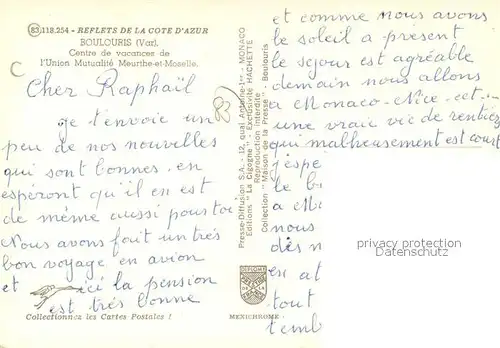 83.118.254 - REFLETS DE LA COTE D'AZUR
BOULOURIS (Var).
Centre de vacances de
l'Union Mutualité Meurthe-et-Moselle.
C
Cher Raphaël
je t'envoie un
peu de nos nouvelles
qui sont bonnes. en
espéront qu'il en est
de même aussi pour toi
Nous avons fait un très
bon voyage en avion
et ici la pension
est très bonne
Collectionnez les Cartes Postales !
83
Presse-Diffusion S.A. - 12, quai Antoine-1er - MONACO
Editions "La Cigogne" - Exclusivité HACHETTE
Reproduction interdite
Collection "Maison de la Presse" - Boulouris
MEXICHROME
et comme nous avons
le soleil a présent
le séjour est agréable
demain nous allons
a Monaco - Nice - ect...
une vraie vie de rentiers
qui malheusement est court
j'espe
le b
a
nous
dès n
es at
tout
t'emb
privacy protection
Datenschutz